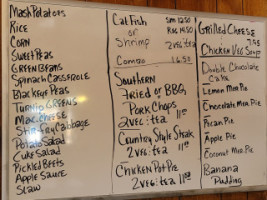 Mash Potatoes
Rice
Corn
Sweet Peas
Green Beans
Spinach Casserole
Black Eye Peas
Turnip Greens
Mac & Cheese
Stir Fry Cabbage
Potato Salad
Cuke Salad
Pickled Beets
Apple Sauce
Slaw
Cat Fish
or
Shrimp
Combo 16.50
Sm 12.50
Reg 14.50
2 veg & tea
Southern
Fried or BBQ
Pork Chops
2 veg & tea 11.00
Country Style Steak
2 veg & tea 11.00
Chicken Pot Pie
2 veg & tea 11.00
Grilled Cheese
Chicken Veg Soup
Double Chocolate
Cake
Lemon Mrn. Pie
Chocolate Mrn. Pie
Pecan Pie
Apple Pie
Coconut Mrn. Pie
Banana
Pudding